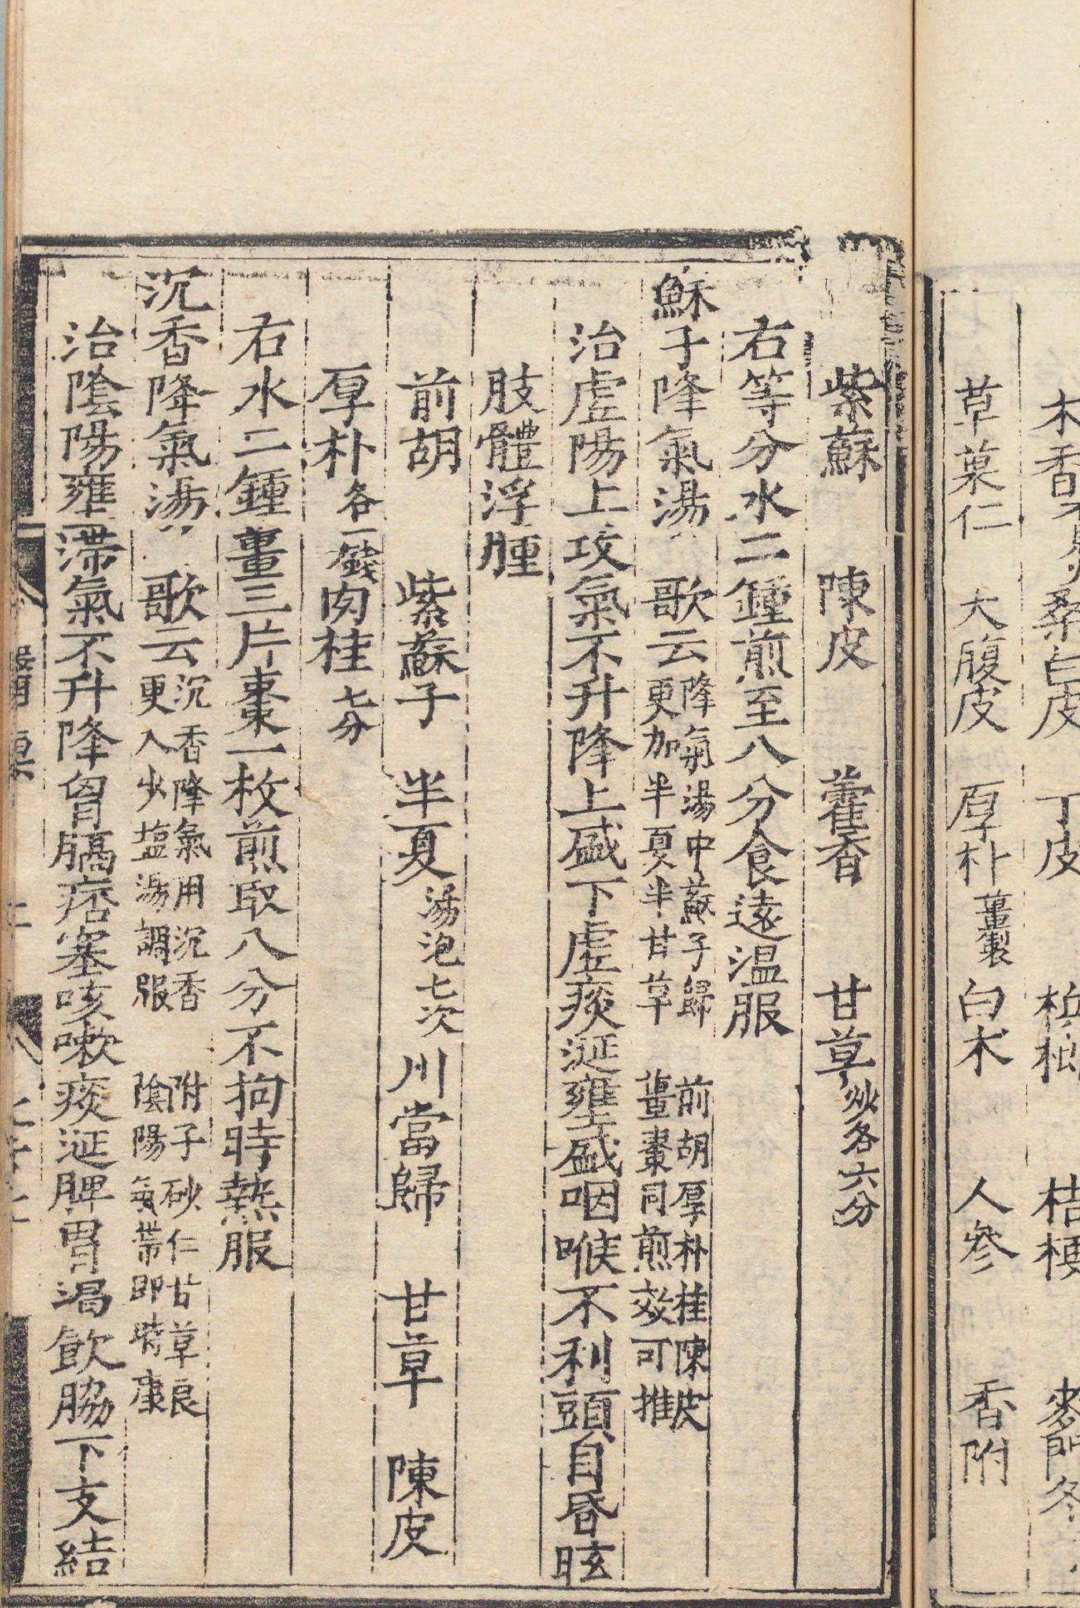 木香 桑白皮 丁皮 檳榔 桔梗 麥門冬
草菓仁 大腹皮 厚朴薑製 白朮 人參 香附
紫蘇 陳皮 藿香 甘草炒各六分
右等分水二鐘煎至八分食遠温服
蘇子降氣湯 歌云降氣湯中蘇子歸 前胡厚朴桂陳皮
更加半夏半甘草 薑棗同煎效可推
治虛陽上攻氣不升降上盛下虛痰涎壅盛咽喉不利頭目昏眩
肢體浮腫
前胡 紫蘇子 半夏湯泡七次 川當歸 甘草 陳皮
厚朴各一錢 肉桂七分
右水二鐘薑三片棗一枚煎取八分不拘時熱服
沉香降氣湯 歌云沉香降氣用沉香 附子砂仁甘草良
更入少塩湯調服 陰陽氣滯即時康
治陰陽雍滯氣不升降胷膈痞塞咳嗽痰涎脾胃渴飲脇下支結